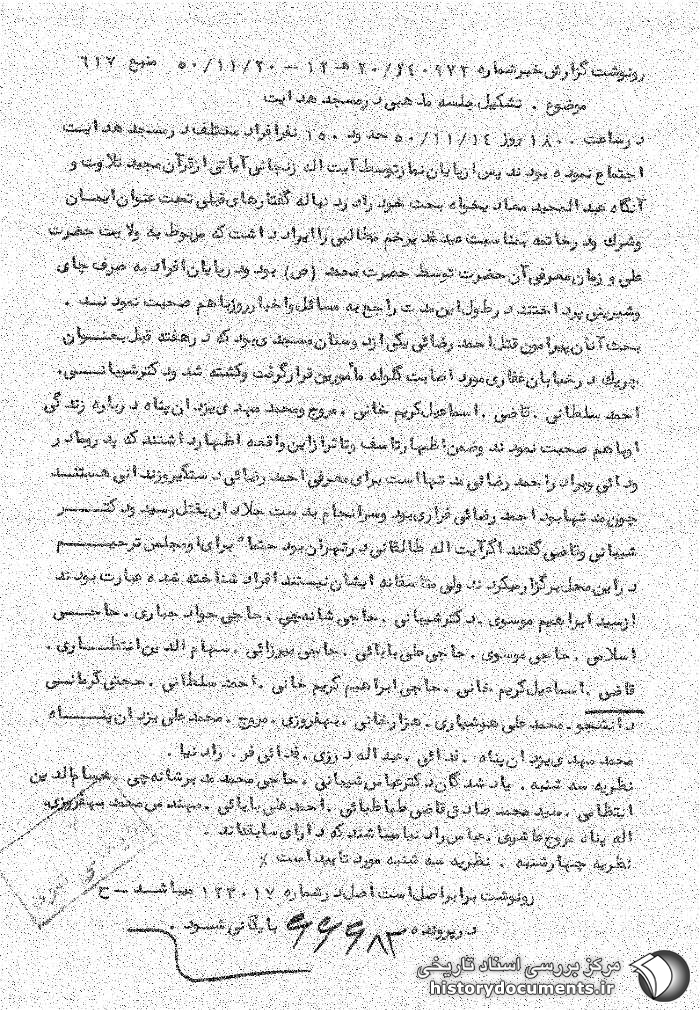 رونوشت گزارش خبر شماره ۲۰/۶۴۰۹۷۲ هـ ۱۲ – ۵۰/۱۱/۲۰ منبع ۶۱۷
موضوع . تشکیل جلسه مذهبی در مسجد هدایت
در ساعت ۱۸۰۰ روز ۵۰/۱۱/۱۴ حدود ۱۵۰ نفر افراد مختلف در مسجد هدایت
اجتماع نموده بودند پس از پایان نماز توسط آیت اله زنجانی آیاتی از قرآن مجید تلاوت و
آنگاه عبدالمجید معادیخواه بحث خود را در دنباله گفتارهای قبلی تحت عنوان ایمان
وشرک ود رخاتمه بمناسبت عید غدیر خم مطالبی را ایراد داشت که مربوط به ولایت حضرت
علی و زمان معرفی آن حضرت توسط حضرت محمد (ص) بود ود رپایان افراد به صرف چای
وشیرینی پرداختند در طول این مدت راجع به مسائل واخبار روز باهم صحبت نمودند .
بحث آنان پیرامون قتل احمد رضائی یکی از دوستان مسجدی بود که در هفته قبل بعنوان
چریک در خیابان غفاری مورد اصابت گلوله مأمورین قرار گرفت وکشته شد ودکتر شیبانی .
احمد سلطانی . قاضی . اسماعیل کریم خانی . مروج ومحمد مهدی یزدان پناه درباره زندگی
او باهم صحبت نمودند وضمن اظهار تاسف وتاثر از این واقعه اظهار داشتند که پدر ومادر
ودائی وبرادر احمد رضائی مدتها است برای معرفی احمد رضائی دستگیر وزندانی هستند
چون مدتها بود احمد رضائی فراری بود وسرانجام بدست جلادان بقتل رسید ودکتر
شیبانی وقاضی گفتند اگر آیت اله طالقانی در تهران بود حتماً برای او مجلس ترحیم
در این محل برگزار میکردند ولی متاسفانه ایشان نیستند افراد شناخته شده عبارت بودند
از سید ابراهیم موسوی . دکتر شیبانی . حاجی شانه چی . حاجی جواد جباری . حاجی
اسلامی . حاجی موسوی . حاجی علی بابائی . حاجی میرزائی . سهام الدین انتظاری .
قاضی . اسماعیل کریم خانی . حاجی ابراهیم کریم خانی . احمد سلطانی . حجتی کرمانی
دانشجو . محمد علی هوشیاری . هزارخانی . بهفروزی . مروج . محمد علی یزدان پناه
محمد مهدی یزدان پناه . فدائی . عبداله رزی . فدائی فر . رادنیا .
نظریه سه شنبه . یاد شدگان دکتر عباس شیبانی . حاجی محمد مدیر شانه چی . هسام الدین
انتظامی . سید محمد صادق قاضی طباطبائی . احمد علی بابائی . مهندس محمد بهفروزی
اله پناه مروج عباس رادنیا میباشند که دارای سابقه اند .
نظریه چهارشنبه . نظریه سه شنبه مورد تأیید است
رونوشت برابر اصل است اصل در شماره ۱۲۳۰۱۷ میباشد – ح
در پرونده بایگانی شود .
مرکز بررسی اسناد تاریخی
historydocuments.ir